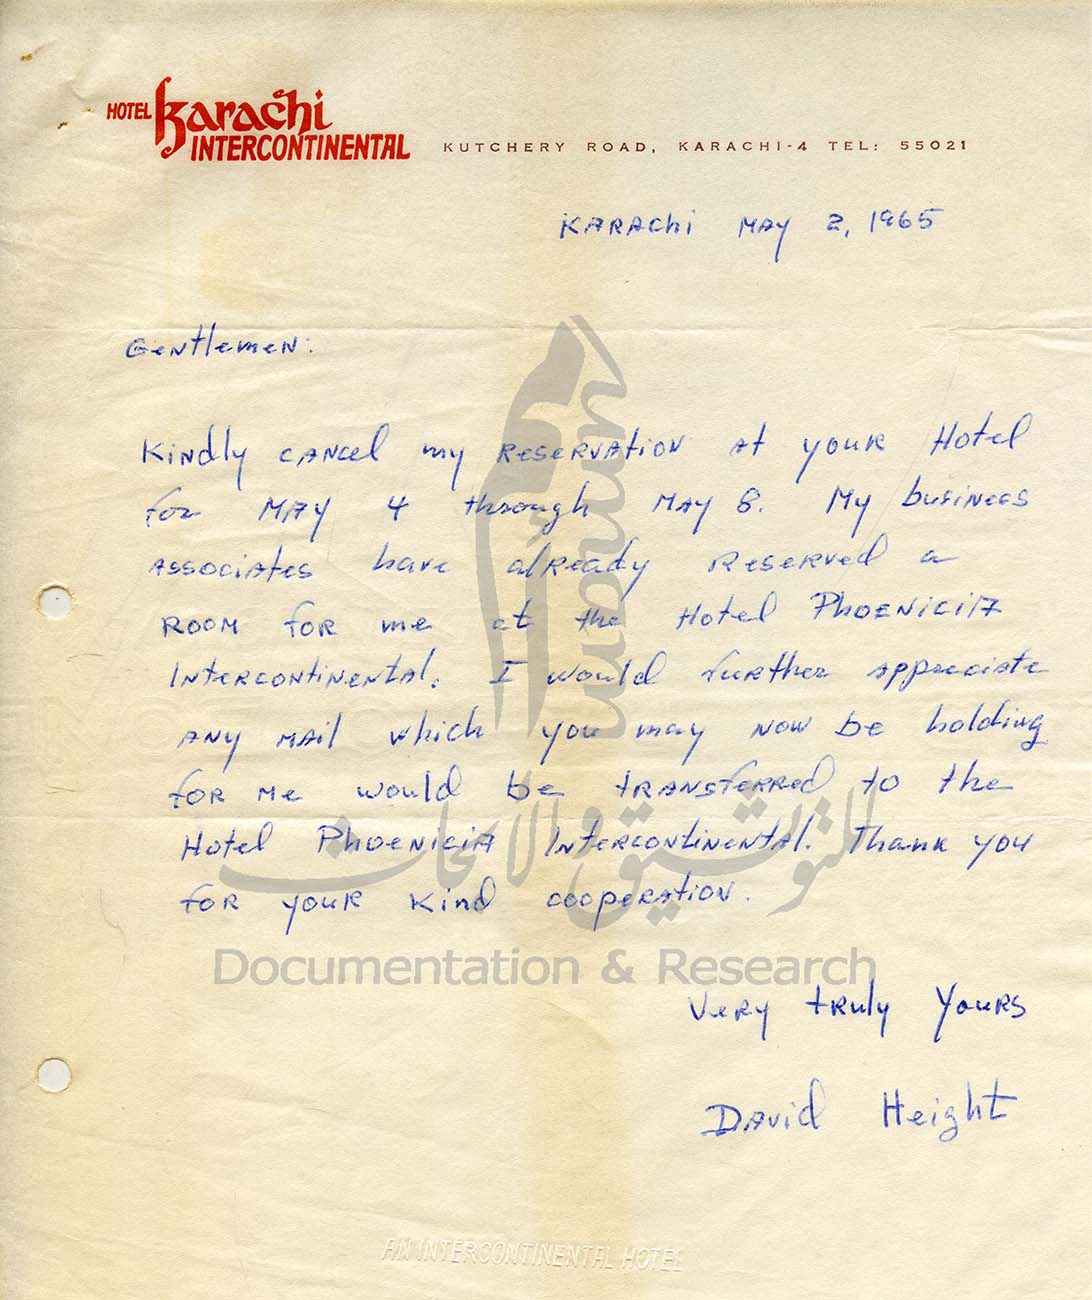 HOTEL Karachi INTERCONTINENTAL
KUTCHERY ROAD, KARACHI-4 TEL: 55021
KARACHI MAY 2, 1965
Gentlemen:
Kindly cancel my reservation at your Hotel
for MAY 4 through MAY 8. My business
associates have already reserved a
room for me at the Hotel Phoenicia
Intercontinental. I would further appreciate
any mail which you may now be holding
for me would be transferred to the
Hotel Phoenicia Intercontinental. Thank you
for your kind cooperation.
Very truly yours
David Height
AN INTERCONTINENTAL HOTEL
umam
للتوثيق والأبحاث
Documentation & Research